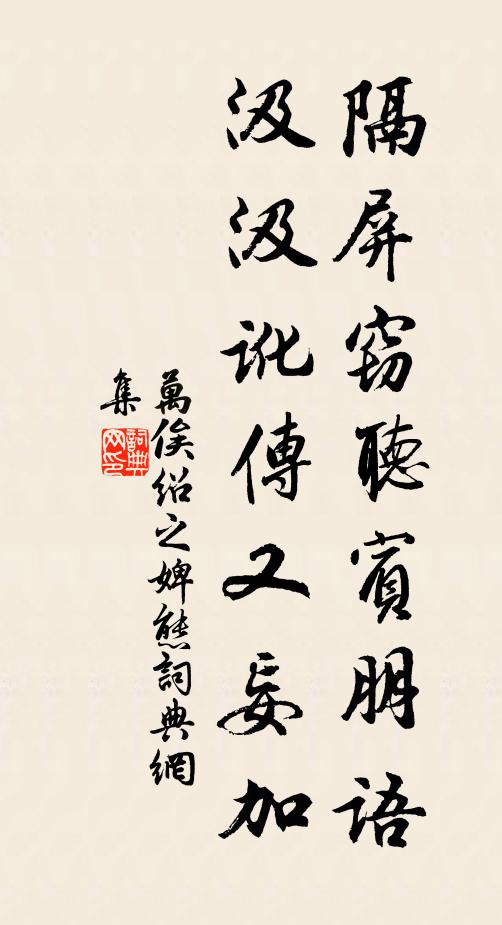 隔屏窃聽賓朋語
汲汲訛傳又妄加
萬俟绍之婢態詞典網
集
詞典网印